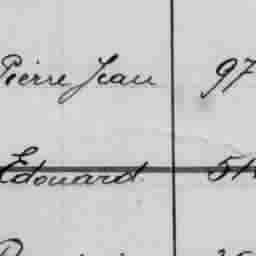 Pierre Jean 97
Edouard